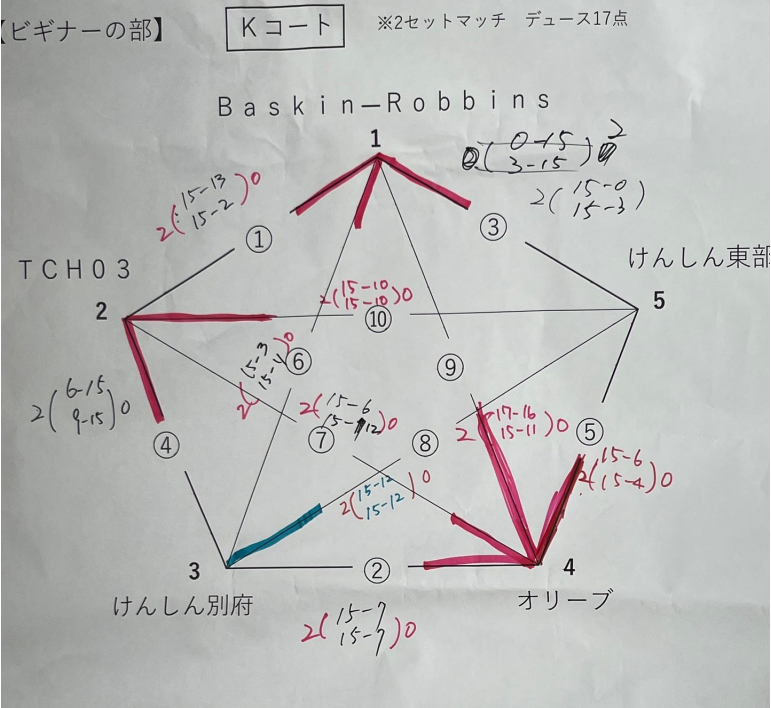 【ビギナーの部】 Kコート ※2セットマッチ デュース17点
Baskin—Robbins
1
0-15
3-15
2
2(15-0
15-3)
2(15-13
15-2)0
①
③
TCH03
けんしん東部
2
5
2(15-10
15-10)0
⑩
2(15-3
15-4)0
⑥
⑨
2(6-15
9-15)0
④
2(15-6
15-12)0
⑦
⑧
2(17-16
15-11)0
⑤
2(15-6
15-4)0
2(15-12
15-12)0
3
②
4
けんしん別府
オリーブ
2(15-7
15-7)0